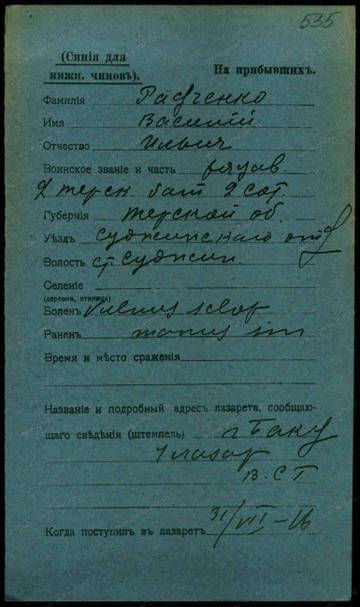 535
(Синія для
нижн. чиновъ).
На прибывшихъ.
Фамилія Радченко
Имя Василій
Отчество Ильич
Воинское званіе и часть рядов.
2 терск. бат 2 сот.
Губернія Терской об.
Уѣздъ Суджинскаго отд
Волость ст Суджин.
Селеніе
(деревня, станица)
Боленъ Vulnus sclop
Раненъ manus sin
Время и мѣсто сраженія
Названіе и подробный адресъ лазарета, сообщаю-
щаго свѣдѣнія (штемпель) г Баку
1 лазар
В. С Г
Когда поступилъ въ лазаретъ 31/VII-16